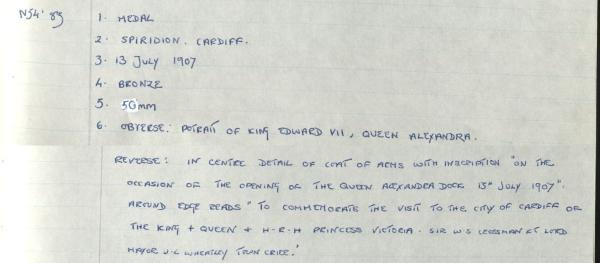 N54'89
1. MEDAL
2. SPIRIDION. CARDIFF.
3. 13 JULY 1907
4. BRONZE
5. 50mm
6. OBVERSE: POTRAIT OF KING EDWARD VII, QUEEN ALEXANDRA.
REVERSE: IN CENTRE DETAIL OF COAT OF ARMS WITH INSCRIPTION "ON THE
OCCASION OF THE OPENING OF THE QUEEN ALEXANDRA DOCK 13th JULY 1907".
AROUND EDGE READS "TO COMMEMORATE THE VISIT TO THE CITY OF CARDIFF OF
THE KING + QUEEN + H.R.H PRINCESS VICTORIA. SIR W S KT LORD
MAYOR J.L WHEATLEY TOWN CRIER."